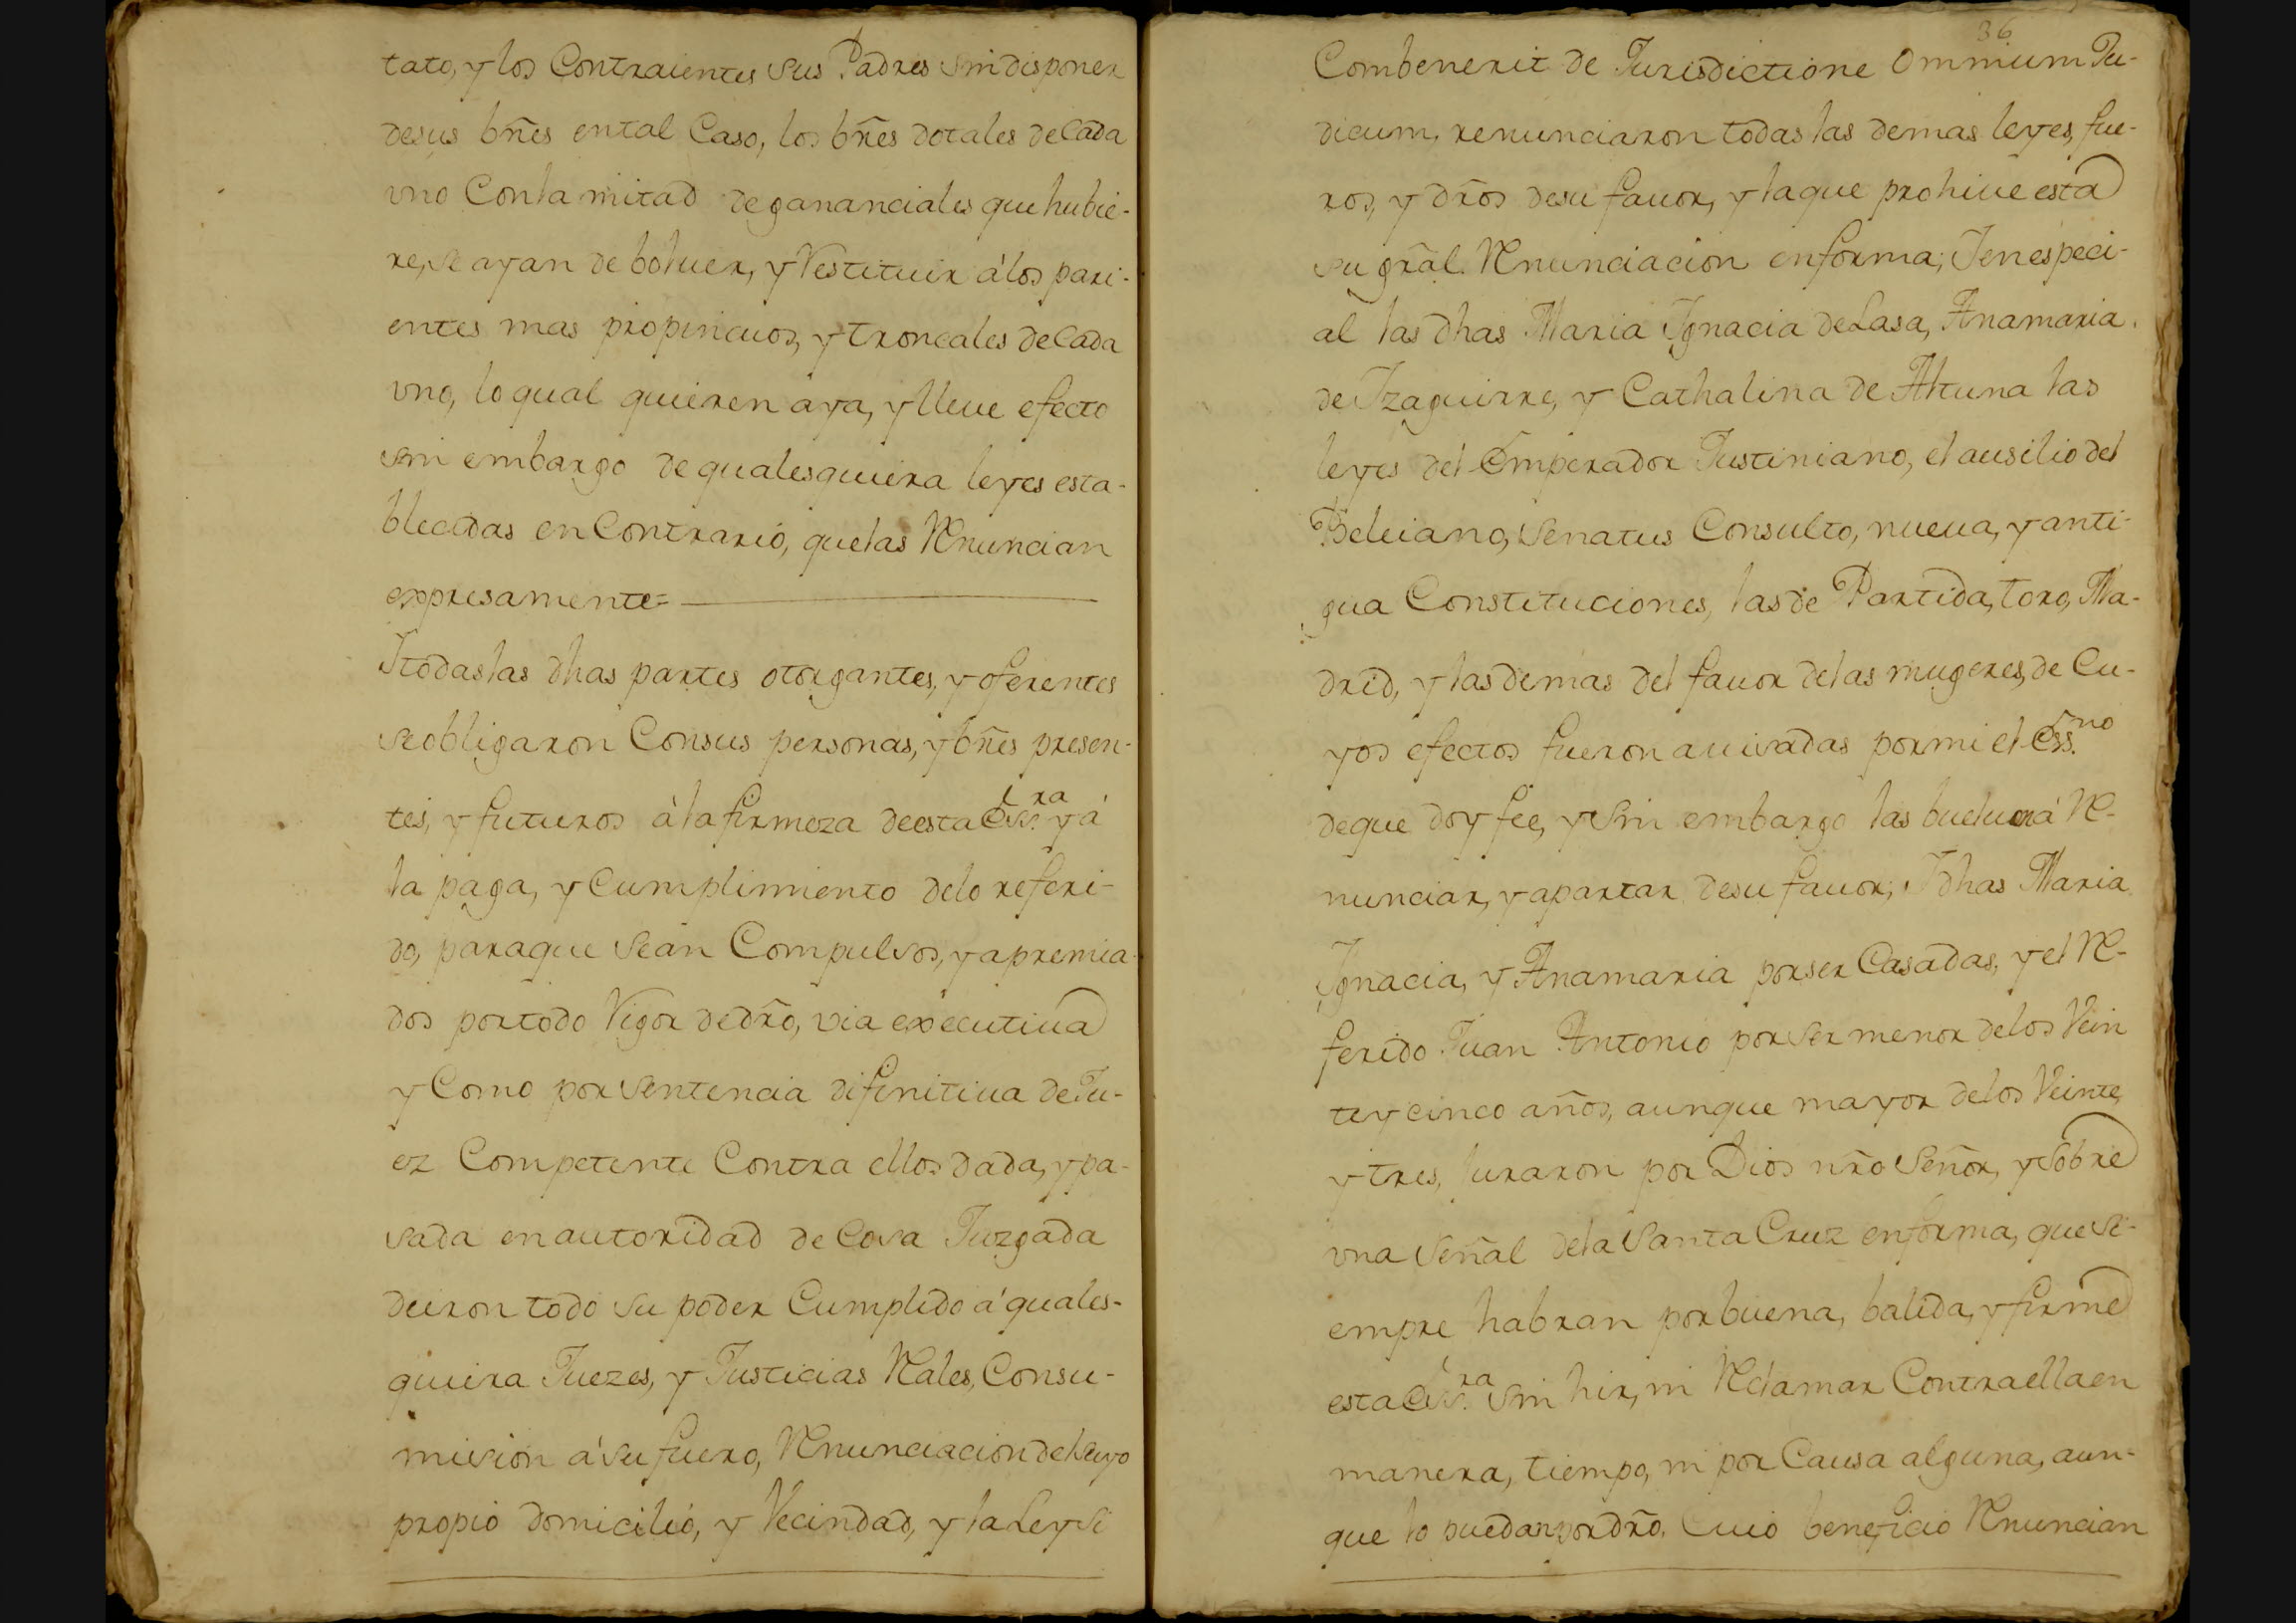 tato, y los Contraientes sus Padres sin disponer
de sus bñes en tal Caso, los bñes dotales de Cada
vno Con la mitad de gananciales que hubie-
re, se ayan de boluer, y Restituir á los pari-
entes mas propincuos, y troncales de Cada
vno, lo qual quieren aya, y lleue efecto
sin embargo de qualesquiera leyes esta-
blecidas en Contrario, que las Renuncian
expresamente=
I todas las dhas partes otorgantes, y oferentes
se obligaron Con sus personas, y bñes presen-
tes, y futuros à la firmeza de esta Ess.ra y á
la paga, y Cumplimiento de lo referi-
do, para que sean Compulsos, y apremia-
dos por todo Vigor de dr̃o, via executiua
y Como por sentencia difinitiua de Ju-
ez Competente Contra ellos dada, y pa-
sada en autoridad de Cosa Juzgada
dieron todo su poder Cumplido á quales-
quiera Juezes, y Justicias Rales, Con su-
mision á su fuero, Renunciacion del suyo
propio domicilio, y Vecindad, y la Ley si
36
Combenerit de Jurisdictione Omnium Ju-
dicum, renunciaron todas las demas leyes, fue-
ros, y dr̃os de su fauor, y la que prohiue esta
su gr̃al. Renunciacion en forma; I en especi-
al las dhas Maria Ignacia de Lasa, Ana maria
de Izaguirre, y Cathalina de Altuna las
leyes del Emperador Justiniano, el ausilio del
Beleiano, Senatus Consulto, nueua, y anti-
gua Constituciones, las de Partida, toro, Ma-
drid, y las demas del fauor de las mugeres, de Cu-
yos efectos fueron auisadas por mi el Ess.no
de que doy fee, y sin embargo las buelu á Re-
nunciar, y apartar de su fauor; I dhas Maria
Ignacia, y Ana maria por ser Casadas, y el Re-
ferido Juan Antonio por ser menor de los Vein
te y cinco años, aunque mayor de los Veinte
y tres, Juraron por Dios nr̃o Señor, y sobre
vna Señal de la Santa Cruz en forma, que si-
empre habran por buena, balida, y firme
esta Ess.ra sin hir, ni Reclamar Contra ella en
manera, tiempo, ni por Causa alguna, aun-
que lo puedan por dr̃o, Cuio beneficio Renuncian